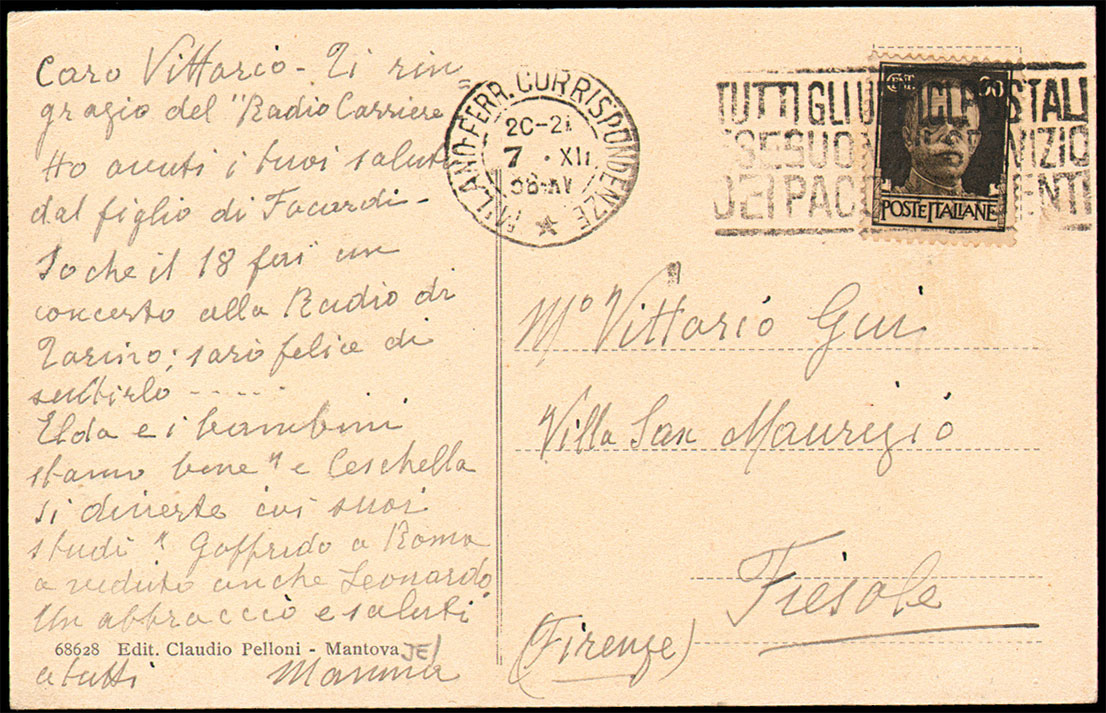 Caro Vittorio - Ti rin
grazio del "Radio Carriere"
Ho avuti i tuoi saluti
dal figlio di Focardi -
So che il 18 fai un
concerto alla Radio di
Torino; sarò felice di
sentirlo -----
Elda e i bambini
stanno bene " e Ceschella
si diverte coi suoi
studi " Goffrido a Roma
a veduto anche Leonardo.
Un abbraccio e saluti
68628 Edit. Claudio Pelloni - Mantova JE/
a tutti Mamma
MILANO-FERR. CORRISPONDENZE
20-21
7 . XII
36-XV
TUTTI GLI UFFICI POSTALI
ESEGUONO IL SERVIZIO
DEI PACCHI URGENTI
CENT. 30
POSTE ITALIANE
Mº Vittorio Gui
Villa San Maurizio
Fiesole
(Firenze)